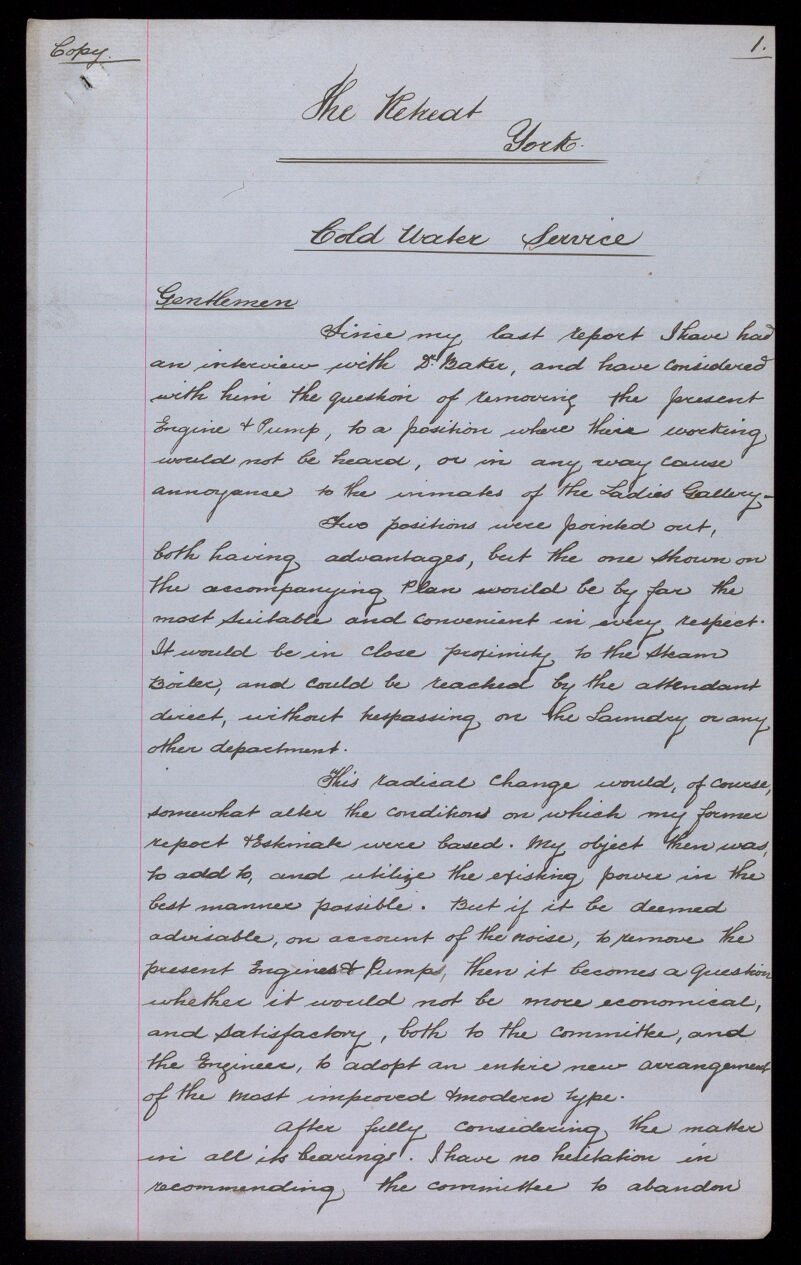 Copy.
1.
The Retreat
York.
Cold Water Service
Gentlemen
Since my last report I have had
an interview with Dr. Baker, and have considered
with him the question of removing the present
Engine & Pump, to a position where their working
would not be heard, or in any way cause
annoyance to the inmates of the Ladies Gallery-
Two positions were pointed out,
both having advantages, but the one shown on
the accompanying Plan would be by far the
most suitable and convenient in every respect.
It would be in close proximity to the Steam
Boiler, and could be reached by the attendant
direct, without trespassing on the Laundry or any
other department.
This radical change would, of course,
somewhat alter the conditions on which my former
report & Estimate were based. My object then was,
to add to, and utilize the existing power in the
best manner possible. But if it be deemed
advisable, on account of the noise, to remove the
present Engines & Pumps, then it becomes a question
whether it would not be more economical,
and satisfactory, both to the committee, and
the Engineer, to adopt an entire new arrangement
of the most improved & modern type.
After fully considering the matter
in all its bearings. I have no hesitation in
recommending the committee to abandon